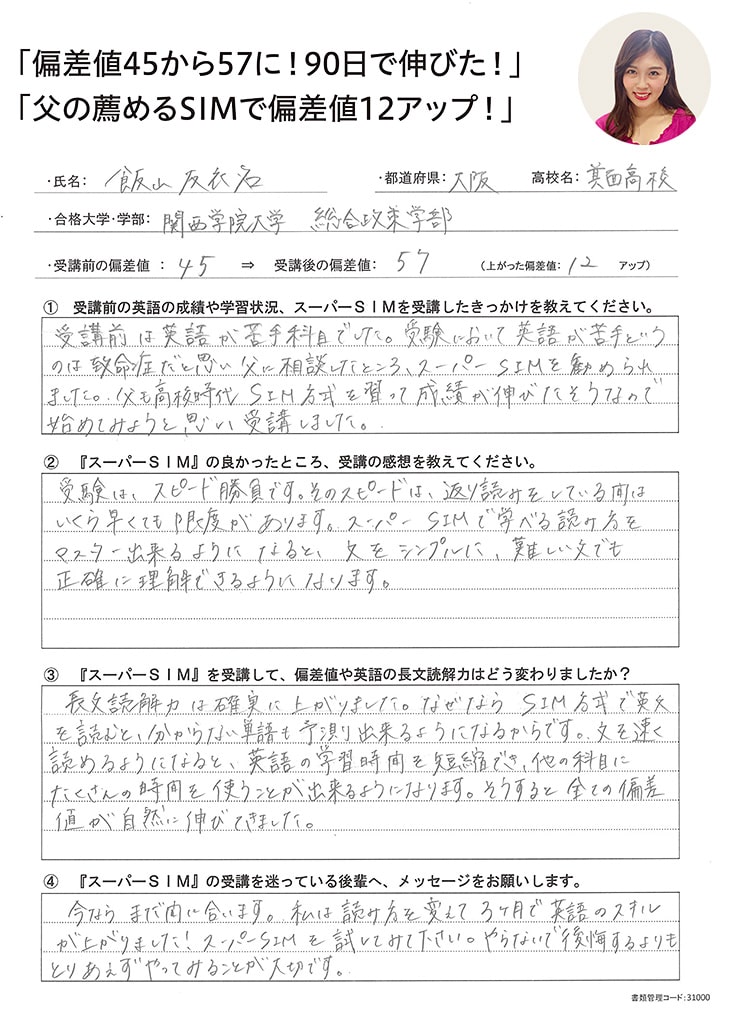 「偏差値45から57に！90日で伸びた！」
「父の薦めるSIMで偏差値12アップ！」
・氏名： 飯山 友衣名 ・都道府県： 大阪 高校名： 箕面高校
・合格大学・学部： 関西学院大学 総合政策学部
・受講前の偏差値 ： 45 ⇒ 受講後の偏差値： 57 （上がった偏差値： 12 アップ）
① 受講前の英語の成績や学習状況、スーパーＳＩＭを受講したきっかけを教えてください。
受講前は英語が苦手科目でした。受験において英語が苦手という
のは致命症だと思い父に相談したところ、スーパーSIMを勧められ
ました。父も高校時代SIM方式を習って成績が伸びたそうなので
始めてみようと思い受講しました。
② 『スーパーＳＩＭ』の良かったところ、受講の感想を教えてください。
受験は、スピード勝負です。そのスピードは、返り読みをしている間は
いくら早くても限度があります。スーパーSIMで学べる読み方を
マスター出来るようになると、文をシンプルに、難しい文でも
正確に理解できるようになります。
③ 『スーパーＳＩＭ』を受講して、偏差値や英語の長文読解力はどう変わりましたか？
長文読解力は確実に上がりました。なぜなら SIM方式で英文
を読むと、分からない単語も予測り出来るようになるからです。文を速く
読めるようになると、英語の学習時間を短縮でき、他の科目に
たくさんの時間を使うことが出来るようになります。そうすると全ての偏差
値が自然に伸びてきました。
④ 『スーパーＳＩＭ』の受講を迷っている後輩へ、メッセージをお願いします。
今ならまだ間に合います。私は読み方を変えて3ヶ月で英語のスキル
が上がりました！スーパーSIMを試してみて下さい。やらないで後悔するよりも
とりあえずやってみることが大切です。
書類管理コード：31000